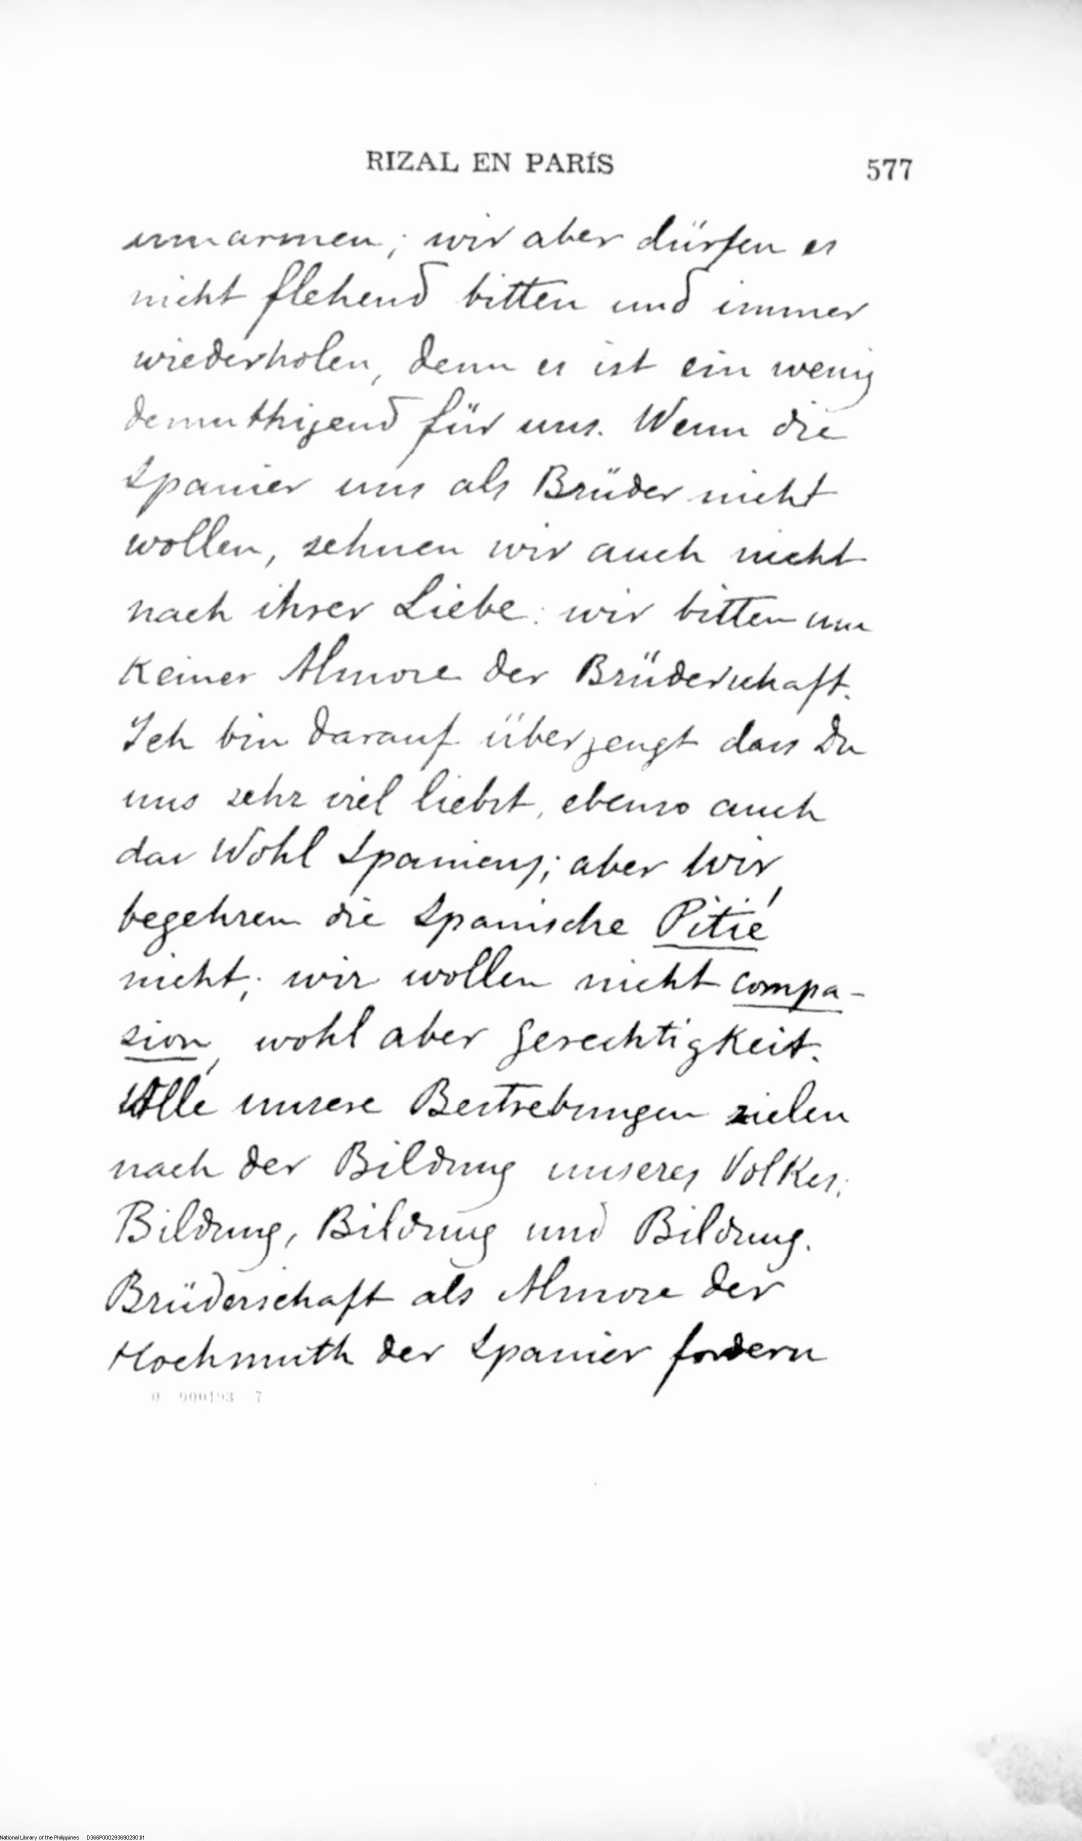 RIZAL EN PARÍS 577
umarmen; wir aber dürfen es
nicht flehend bitten und immer
wiederholen, denn es ist ein wenig
demuthigend für uns. Wenn die
Spanier uns als Brüder nicht
wollen, sehnen wir auch nicht
nach ihrer Liebe: wir bitten um
keiner Almose der Brüderschaft.
Ich bin darauf überzeugt dass Du
uns sehr viel liebst, ebenso auch
das Wohl Spaniens; aber wir
begehren die Spanische Pitié
nicht; wir wollen nicht compa-
sion, wohl aber Gerechtigkeit.
Alle unsere Bestrebungen zielen
nach der Bildung unseres Volkes;
Bildung, Bildung und Bildung.
Brüderschaft als Almose der
Hochmuth der Spanier fordern
National Library of the Philippines